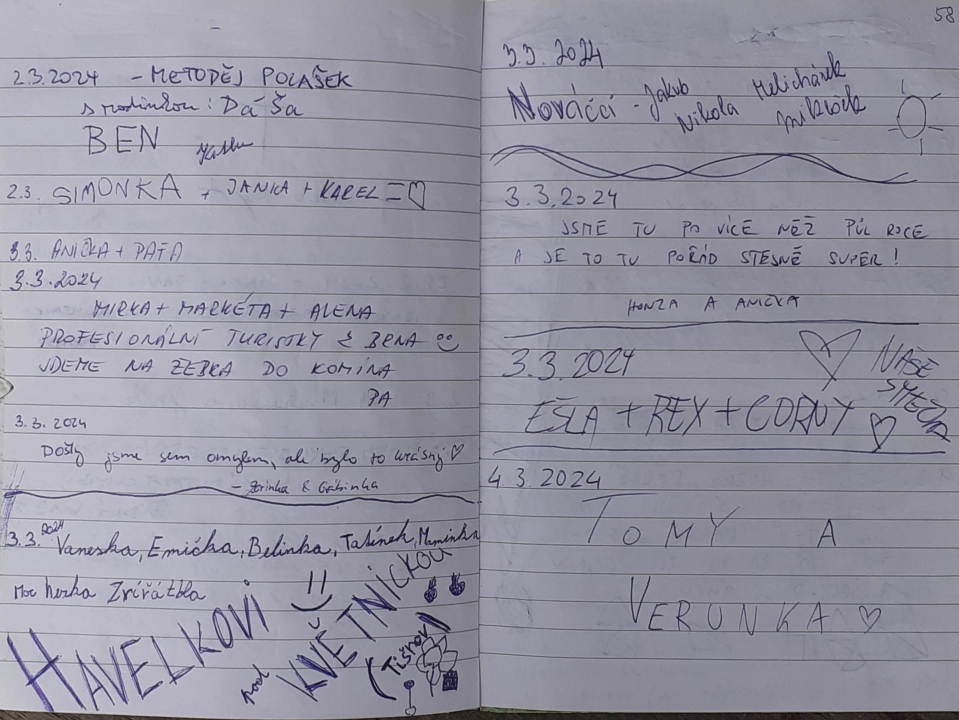 2.3.2024 - METODĚJ POLAŠEK
s rodinkou: Dáša
BEN
2.3. SIMONKA + JANKA + KAREL = ♡
3.3. ANIČKA + PAŤA
3.3.2024
MIRKA + MARKÉTA + ALENA
PROFESIONÁLNÍ TURISTKY Z BRNA
JDEME NA ŽEBRA DO KOMÍNA
PA
3.3.2024
Došly jsme sem omylem, ale bylo to krásný ♡
- Terinka & Gábinka
3.3.2024 Vaneska, Emička, Belinka, Tatínek, Maminka
Moc hezká Zvířátka
HAVELKOVI
pod KVĚTNICKOU
(Tišnov)
58
3.3. 2024
Nováčci - Jakub Melichárek
Nikola
3.3.2024
JSME TU PO VÍCE NĚŽ PŮL ROCE
A JE TO TU POŘÁD STEJNĚ SUPER!
HONZA A ANIČKA
3.3.2024
♡ NAŠE SMEČKA
EŠLA + REX + CORNY ♡
4.3.2024
TOMY A
VERUNKA ♡